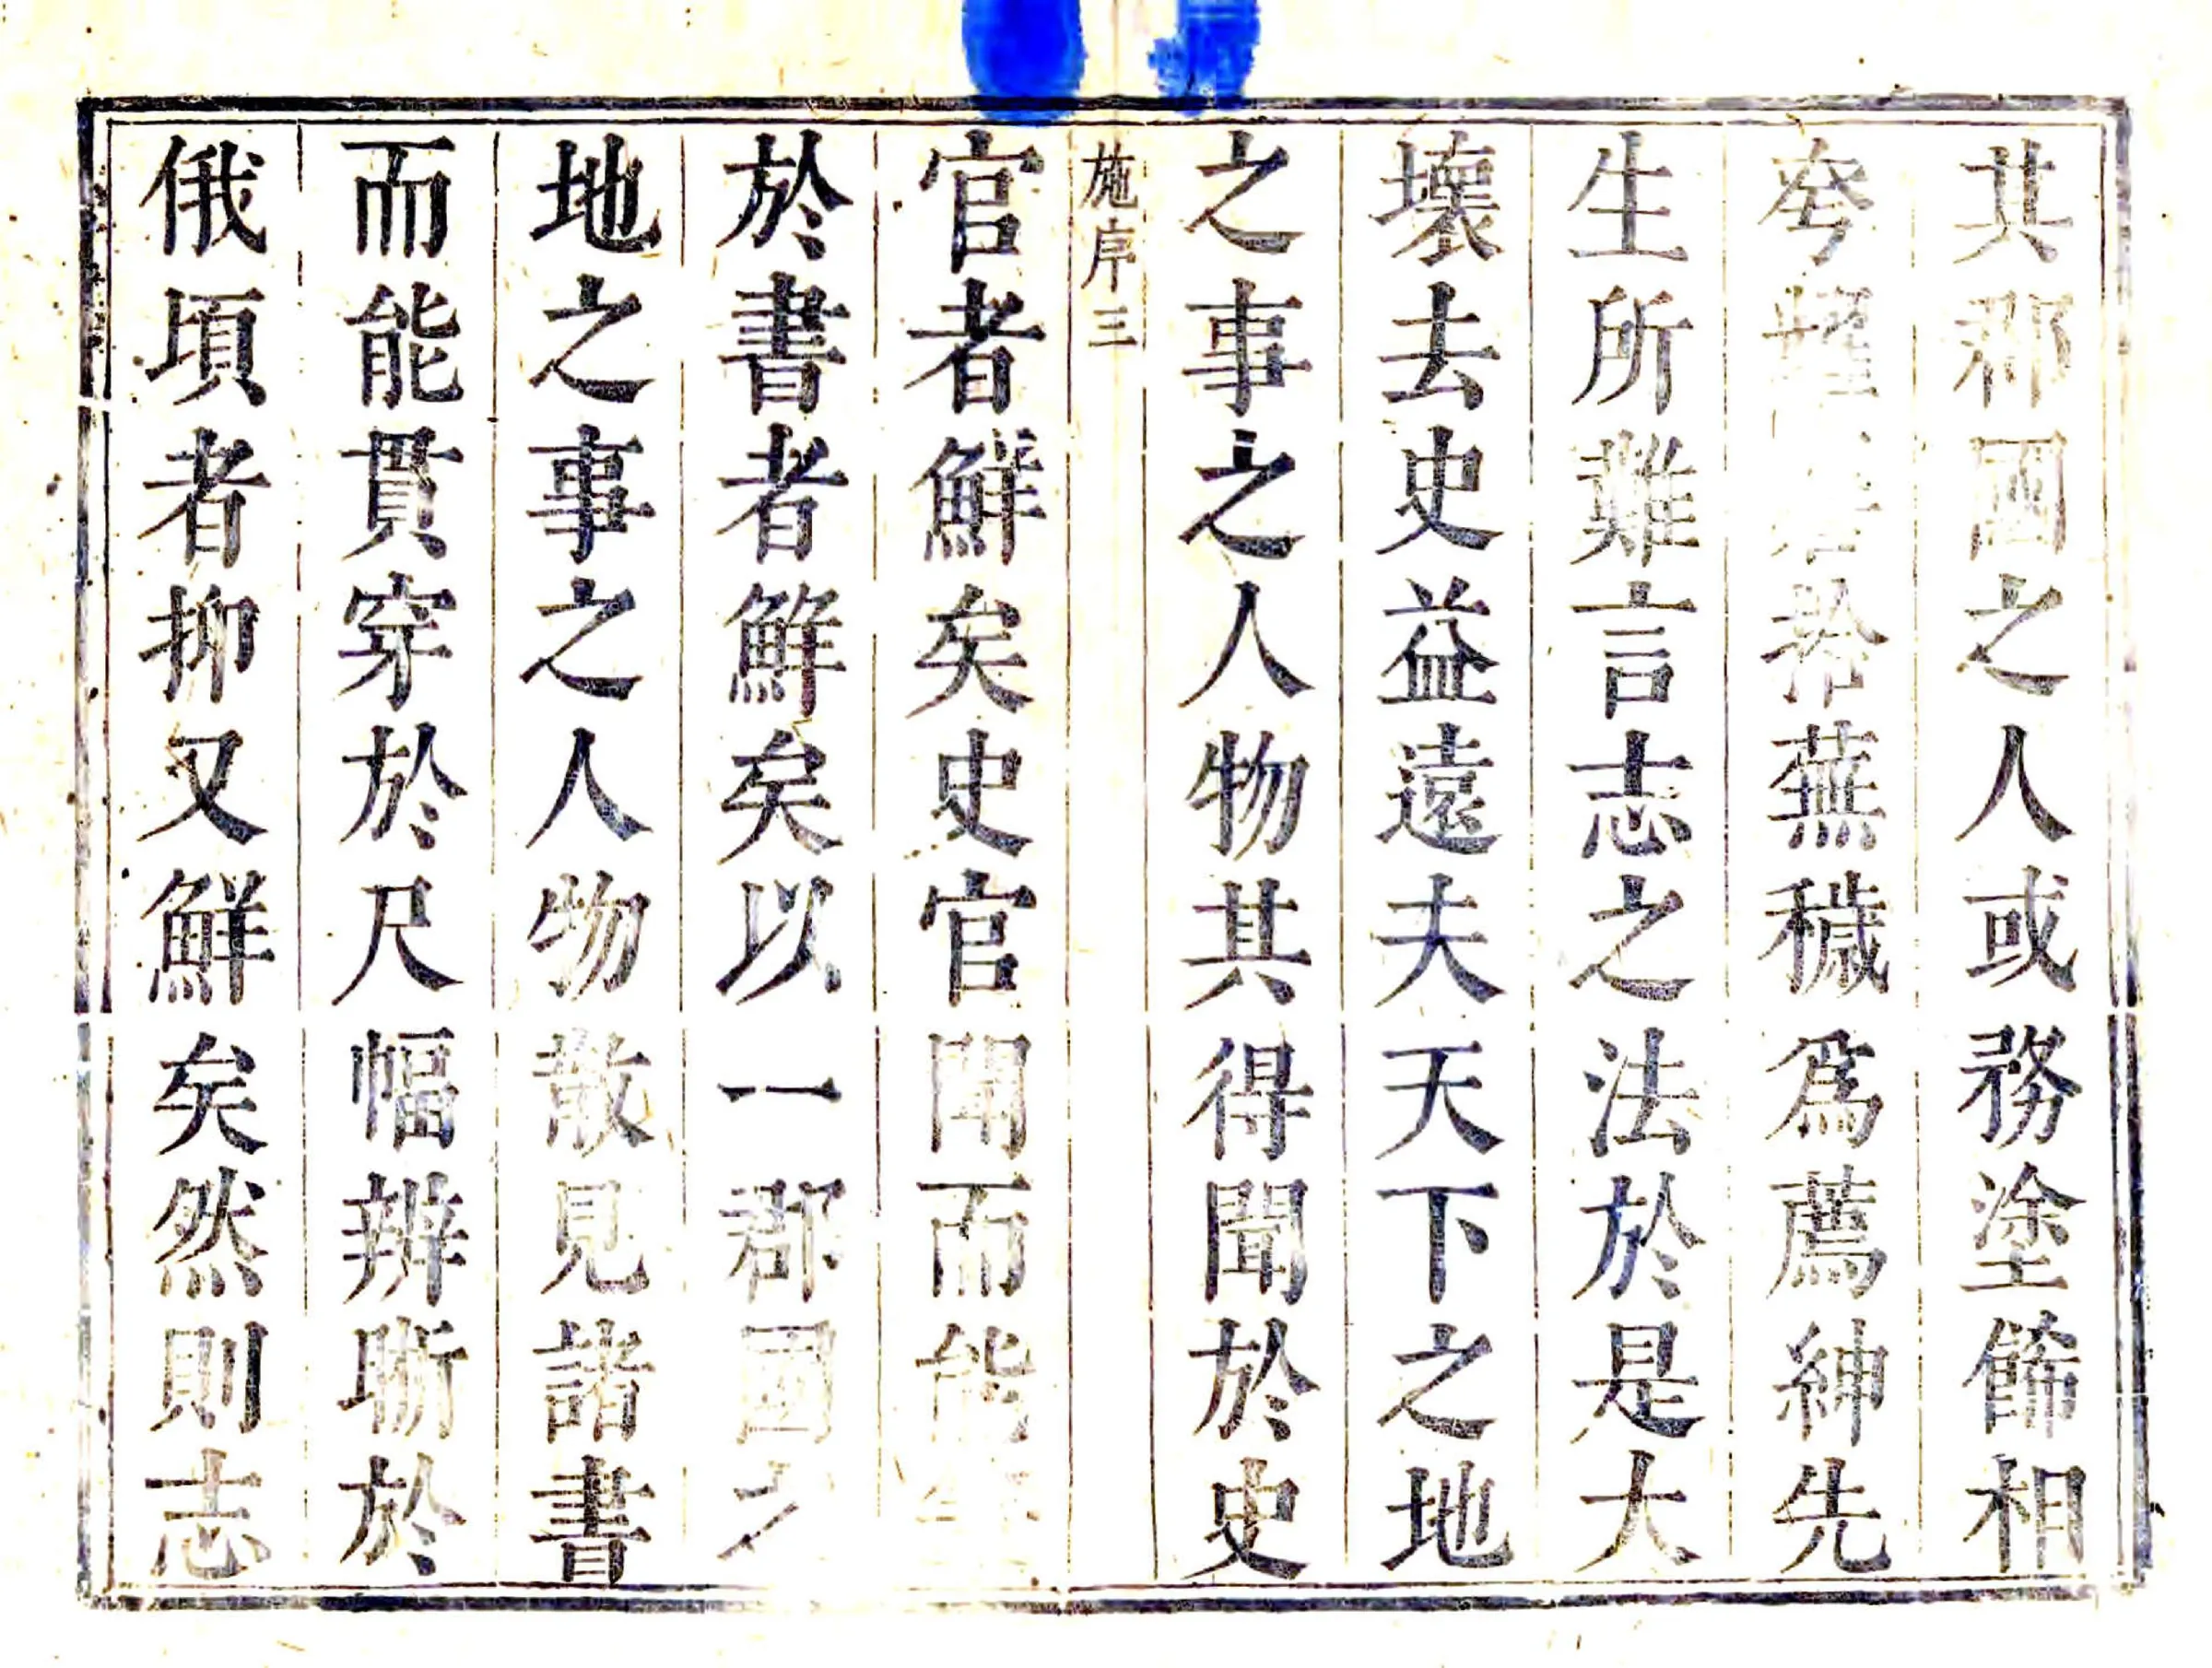 其郡國之人或務塗飾相
夸蕪穢爲薦紳先
生所難言志之法於是大
壞去史益遠夫天下之地
之事之人物其得聞於史
施序三
官者鮮矣史官聞而能
於書者鮮矣以一郡國之
地之事之人物散見諸書
而能貫穿於尺幅辨晰於
俄頃者抑又鮮矣然則志